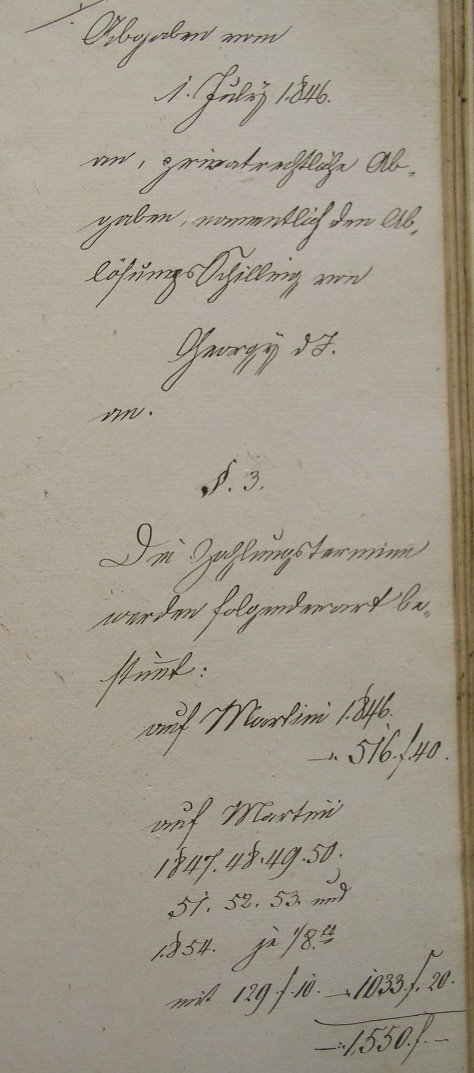 Abgaben vom
1. July 1846.
an, privatrechtliche Ab-
gaben, namentlich den Ab-
lösungs Schilling von
Georgy d J.
an.
§. 3.
Die Zahlungstermine
werden folgenderart be-
stim̄t:
auf Martini 1846.
—. 516. f. 40.
auf Martini
1847. 48. 49. 50.
51. 52. 53. und
1854. je 1/8tl
mit 129 f. 10. —. 1033. f. 20.
—. 1,550. f. —